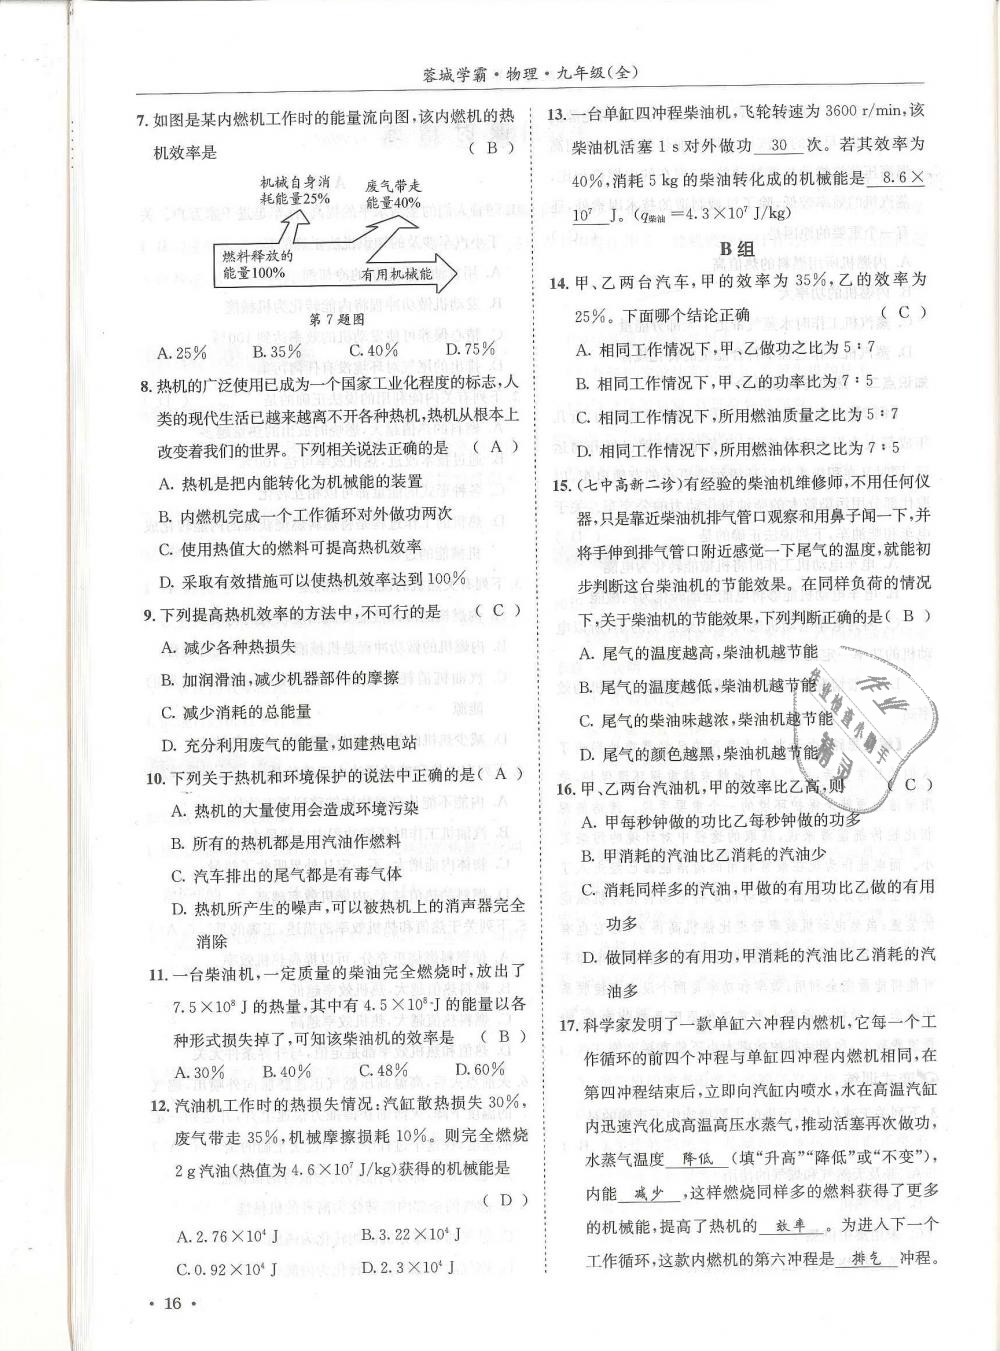 蓉城学霸·物理·九年级(全)
7. 如图是某内燃机工作时的能量流向图,该内燃机的热
机效率是 ( B )
机械自身消
耗能量25%
废气带走
能量40%
燃料释放的
能量100%
有用机械能
第7题图
A. 25% B. 35% C. 40% D. 75%
8. 热机的广泛使用已成为一个国家工业化程度的标志,人
类的现代生活已越来越离不开各种热机,热机从根本上
改变着我们的世界。下列相关说法正确的是 ( A )
A. 热机是把内能转化为机械能的装置
B. 内燃机完成一个工作循环对外做功两次
C. 使用热值大的燃料可提高热机效率
D. 采取有效措施可以使热机效率达到100%
9. 下列提高热机效率的方法中,不可行的是 ( C )
A. 减少各种热损失
B. 加润滑油,减少机器部件的摩擦
C. 减少消耗的总能量
D. 充分利用废气的能量,如建热电站
10. 下列关于热机和环境保护的说法中正确的是( A )
A. 热机的大量使用会造成环境污染
B. 所有的热机都是用汽油作燃料
C. 汽车排出的尾气都是有毒气体
D. 热机所产生的噪声,可以被热机上的消声器完全
消除
11. 一台柴油机,一定质量的柴油完全燃烧时,放出了
7.5×10⁸ J的热量,其中有4.5×10⁸ J的能量以各
种形式损失掉了,可知该柴油机的效率是 ( B )
A. 30% B. 40% C. 48% D. 60%
12. 汽油机工作时的热损失情况:汽缸散热损失30%,
废气带走35%,机械摩擦损耗10%。则完全燃烧
2 g汽油(热值为4.6×10⁷ J/kg)获得的机械能是
( D )
A. 2.76×10⁴ J B. 3.22×10⁴ J
C. 0.92×10⁴ J D. 2.3×10⁴ J
• 16 •
13. 一台单缸四冲程柴油机,飞轮转速为3600 r/min,该
柴油机活塞1 s对外做功 30 次。若其效率为
40%,消耗5 kg的柴油转化成的机械能是 8.6×
10⁷ J。(q柴油=4.3×10⁷ J/kg)
B组
14. 甲、乙两台汽车,甲的效率为35%,乙的效率为
25%。下面哪个结论正确 ( C )
A. 相同工作情况下,甲、乙做功之比为5∶7
B. 相同工作情况下,甲、乙的功率比为7∶5
C. 相同工作情况下,所用燃油质量之比为5∶7
D. 相同工作情况下,所用燃油体积之比为7∶5
15. (七中高新二诊)有经验的柴油机维修师,不用任何仪
器,只是靠近柴油机排气管口观察和用鼻子闻一下,并
将手伸到排气管口附近感觉一下尾气的温度,就能初
步判断这台柴油机的节能效果。在同样负荷的情况
下,关于柴油机的节能效果,下列判断正确的是( B )
A. 尾气的温度越高,柴油机越节能
B. 尾气的温度越低,柴油机越节能
C. 尾气的柴油味越浓,柴油机越节能
D. 尾气的颜色越黑,柴油机越节能
作业
作业检查小助手
精灵
16. 甲、乙两台汽油机,甲的效率比乙高,则 ( C )
A. 甲每秒钟做的功比乙每秒钟做的功多
B. 甲消耗的汽油比乙消耗的汽油少
C. 消耗同样多的汽油,甲做的有用功比乙做的有用
功多
D. 做同样多的有用功,甲消耗的汽油比乙消耗的汽
油多
17. 科学家发明了一款单缸六冲程内燃机,它每一个工
作循环的前四个冲程与单缸四冲程内燃机相同,在
第四冲程结束后,立即向汽缸内喷水,水在高温汽缸
内迅速汽化成高温高压水蒸气,推动活塞再次做功,
水蒸气温度 降低 (填“升高”“降低”或“不变”),
内能 减少 ,这样燃烧同样多的燃料获得了更多
的机械能,提高了热机的 效率 。为进入下一个
工作循环,这款内燃机的第六冲程是 排气 冲程。